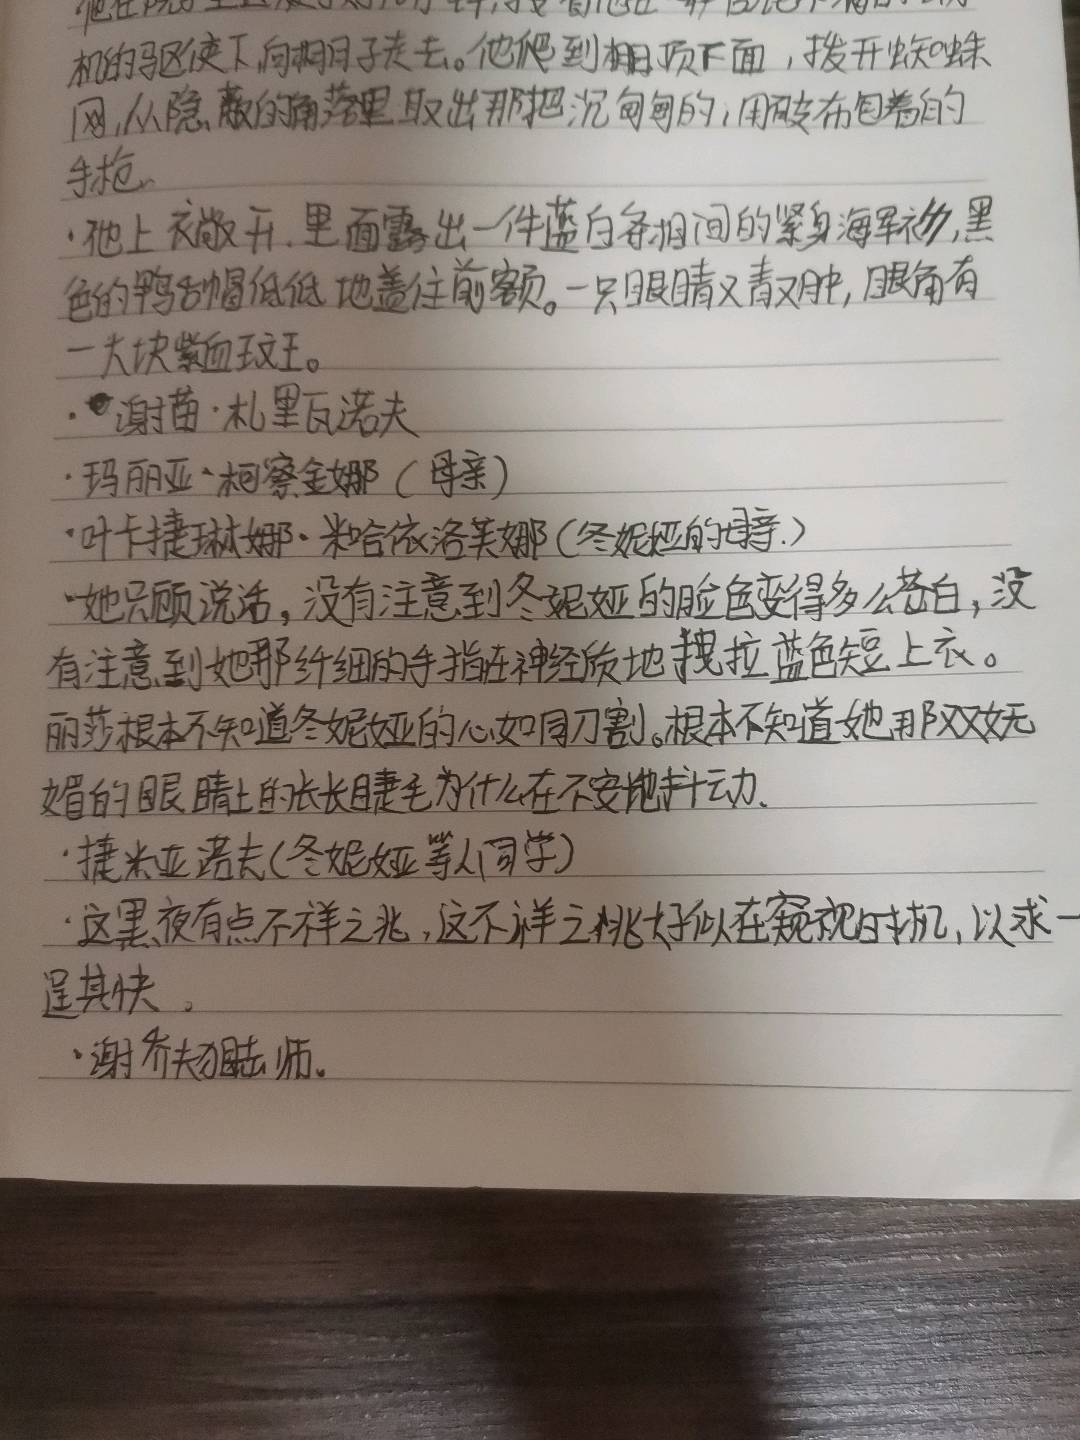 机的驱使下,向棚子走去。他爬到棚顶下面,拨开蜘蛛
网,从隐蔽的角落里取出那把沉甸甸的,用破布包着的
手枪.
·他上衣敞开.里面露出一件蓝白条相间的紧身海军衫,黑
色的鸭舌帽低低地盖住前额。一只眼睛又青又肿,眼角有
一大块紫血斑。
·谢苗·札里瓦诺夫
·玛丽亚·柯察金娜(母亲)
·叶卡捷琳娜·米哈依洛芙娜(冬妮娅的母亲.)
·她只顾说话,没有注意到冬妮娅的脸色变得多么苍白,没
有注意到她那纤细的手指在神经质地拽拉蓝色短上衣。
丽莎根本不知道冬妮娅的心如同刀割。根本不知道她那双妩
媚的眼睛上的长长睫毛为什么在不安地抖动.
·捷米亚诺夫(冬妮娅等人同学)
·这黑夜有点不祥之兆,这不祥之兆好似在窥视时机,以求一
逞其快.
·谢乔夫狙击师。